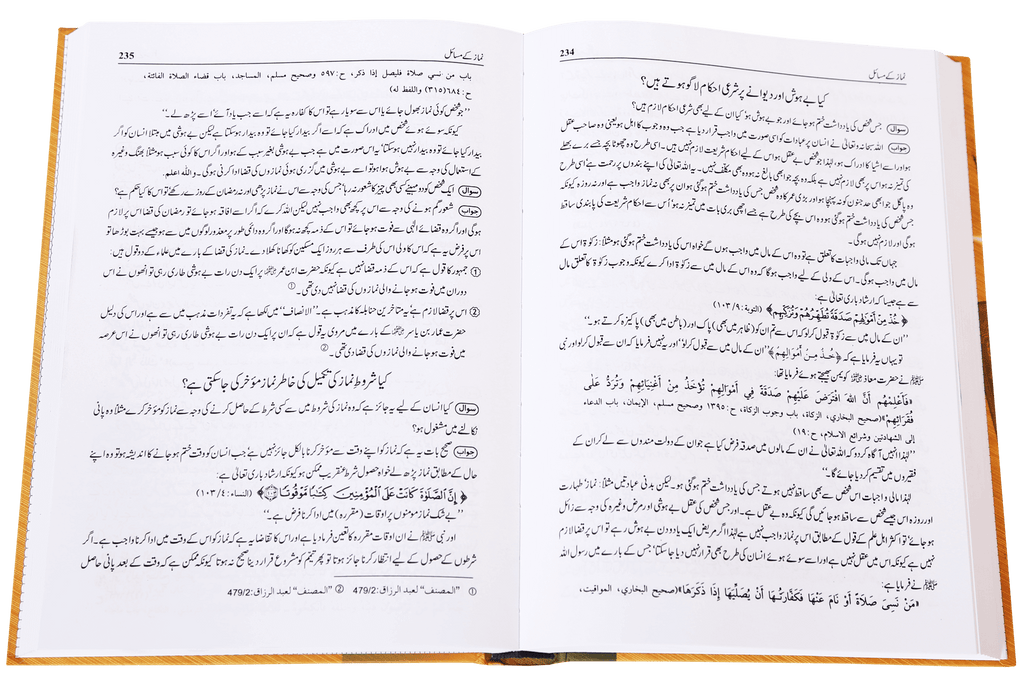 234
نماز کے مسائل
کیا بے ہوش اور دیوانے پر شرعی احکام لاگو ہوتے ہیں؟
سوال جس شخص کی یادداشت ختم ہو جائے اور جو بے ہوش ہو کیا ان کے لیے بھی شرعی احکام لازم ہیں؟
جواب اللہ سبحانہ وتعالیٰ نے انسان پر عبادات کو اسی صورت میں واجب قرار دیا ہے جب وہ وجوب کا اہل ہو یعنی وہ صاحب عقل
ہو اور اسے اشیا کا ادراک ہو، لہٰذا جو شخص بے عقل ہو اس کے لیے احکام شریعت لازم نہیں ہیں۔ اسی طرح وہ چھوٹا بچہ جسے برے بھلے
کی تمیز نہ ہو اس پر بھی لازم نہیں ہے بلکہ وہ بچہ جو ابھی بالغ نہ ہو وہ بھی مکلف نہیں۔ یہ اللہ تعالیٰ کی اپنے بندوں پر رحمت ہے اسی طرح
وہ پاگل جو ابھی حد جنون کو نہ پہنچا ہو اور بڑی عمر کا وہ شخص جس کی یادداشت ختم ہو گئی ہو ان پر بھی نہ نماز واجب ہے اور نہ روزہ کیونکہ
جس شخص کی یادداشت ختم ہو گئی ہو وہ اس بچے کی طرح ہے جسے اچھی بری بات میں تمیز نہ ہو اس سے احکام شریعت کی پابندی ساقط
ہو گی اور لازم نہیں ہو گی۔
جہاں تک مالی واجبات کا تعلق ہے تو وہ اس کے مال میں واجب ہوں گے خواہ اس کی یادداشت ختم ہو گئی ہو مثلاً: زکوۃ اس کے
مال میں واجب ہو گی۔ اس کے ولی کے لیے واجب ہو گا کہ وہ اس کے مال میں سے زکوۃ ادا کرے کیونکہ وجوب زکوۃ کا تعلق مال
سے ہے جیسا کہ ارشاد باری تعالیٰ ہے:
﴿ خُذْ مِنْ أَمْوَالِهِمْ صَدَقَةً تُطَهِّرُهُمْ وَتُزَكِّيهِم ﴾ (التوبة: ۹/ ۱۰۳)
’’ان کے مال میں سے زکوۃ قبول کر لو کہ اس سے تم ان کو (ظاہر میں بھی) پاک اور (باطن میں بھی) پاکیزہ کرتے ہو۔‘‘
تو یہاں یہ فرمایا ہے کہ ﴿خُذْ مِنْ أَمْوَالِهِمْ﴾ ’’ان کے مال میں سے قبول کر لو‘‘ اور یہ نہیں فرمایا کہ ان سے قبول کر لو اور نبی
ﷺ نے حضرت معاذ رضی اللہ عنہ کو یمن بھیجتے ہوئے فرمایا تھا:
«فَأَعْلِمْهُمْ أَنَّ اللهَ افْتَرَضَ عَلَيْهِمْ صَدَقَةً فِي أَمْوَالِهِمْ تُؤْخَذُ مِنْ أَغْنِيَائِهِمْ وَتُرَدُّ عَلَى
فُقَرَائِهِمْ»(صحيح البخاري، الزكاة، باب وجوب الزكاة، ح: ۱۳۹۵ وصحيح مسلم، الإيمان، باب الدعاء
إلى الشهادتين وشرائع الاسلام، ح: ۱۹)
’’لہٰذا انہیں آگاہ کر دو کہ اللہ تعالیٰ نے ان کے مالوں میں صدقہ فرض کیا ہے جو ان کے دولت مندوں سے لے کر ان کے
فقیروں میں تقسیم کر دیا جائے گا۔‘‘
لہٰذا مالی واجبات اس شخص سے بھی ساقط نہیں ہوتے جس کی یادداشت ختم ہو گئی ہو۔ لیکن بدنی عبادتیں مثلاً: نماز‘ طہارت
اور روزہ اس جیسے شخص سے ساقط ہو جائیں گی کیونکہ وہ بے عقل ہے۔ اور جس شخص کی عقل بے ہوشی اور مرض وغیرہ کی وجہ سے زائل
ہو جائے‘ تو اکثر اہل علم کے قول کے مطابق اس پر نماز واجب نہیں ہے لہٰذا اگر مریض ایک یا دو دن بے ہوش رہے تو اس پر قضا لازم
نہیں ہے کیونکہ اس میں عقل نہیں ہے اور اسے سوئے ہوئے انسان کی طرح بھی قرار نہیں دیا جا سکتا‘ جس کے بارے میں رسول اللہ
ﷺ نے فرمایا ہے:
«مَنْ نَسِيَ صَلَاةً أَوْ نَامَ عَنْهَا فَكَفَّارَتُهَا أَنْ يُصَلِّيَهَا إِذَا ذَكَرَهَا»(صحيح البخاري، المواقيت،
235
نماز کے مسائل
باب من نسي صلاة فليصل إذا ذكر، ح: ۵۹۷ وصحيح مسلم، المساجد، باب قضاء الصلاة الفائتة،
ح: ۶۸۴(۳۱۵) واللفظ له)
’’جو شخص کوئی نماز بھول جائے یا اس سے سویا رہے تو اس کا کفارہ یہ ہے کہ اسے جب یاد آئے‘ اسے پڑھ لے۔‘‘
کیونکہ سوئے ہوئے شخص میں ادراک ہے کہ اسے اگر بیدار کیا جائے تو وہ بیدار ہو سکتا ہے لیکن بے ہوشی میں مبتلا انسان کو اگر
بیدار کیا جائے تو وہ بیدار نہیں ہو سکتا‘ یہ اس صورت میں ہے جب بے ہوشی بغیر سبب کے ہو اور اگر اس کا کوئی سبب ہو مثلاً بھنگ وغیرہ
کے استعمال کی وجہ سے بے ہوش ہوا ہو تو اسے بے ہوشی میں گزری ہوئی نمازوں کی قضا ادا کرنی ہو گی۔ واللہ اعلم.
سوال ایک شخص کو دو مہینے کسی بھی چیز کا شعور نہ رہا جس کی وجہ سے اس نے نماز پڑھی اور نہ رمضان کے روزے رکھے تو اس کا کیا حکم ہے؟
جواب شعور گم ہونے کی وجہ سے اس پر کچھ بھی واجب نہیں لیکن اللہ کرے کہ اگر اسے افاقہ ہو جائے تو رمضان کی قضا اس پر لازم
ہو گی اور اگر وہ قضائے الٰہی سے فوت ہو جائے تو اس کے ذمہ کچھ نہ ہو گا اور اگر وہ دائمی طور پر معذور لوگوں میں سے ہو جیسے بہت بوڑھا تو
اس پر فرض یہ ہے کہ اس کا ولی اس کی طرف سے ہر روز ایک مسکین کو کھانا کھلا دے۔ نماز کی قضا کے بارے میں علماء کے دو قول ہیں:
① جمہور کا قول ہے کہ اس کے ذمہ قضا نہیں ہے کیونکہ حضرت ابن عمر رضی اللہ عنہما پر ایک دن رات بے ہوشی طاری رہی تو انھوں نے اس
دوران میں فوت ہو جانے والی نمازوں کی قضا نہیں دی تھی۔①
② اس پر قضا لازم ہے‘ یہ متاخرین حنابلہ کا مذہب ہے۔ ’’الانصاف‘‘ میں لکھا ہے کہ یہ تفردات مذہب میں سے ہے اور اس کی دلیل
حضرت عمار بن یاسر رضی اللہ عنہ کے بارے میں مروی یہ قول ہے کہ ان پر ایک دن رات بے ہوشی طاری رہی تو انھوں نے اس عرصہ
میں فوت ہو جانے والی نمازوں کی قضا دی تھی۔②
کیا شروط نماز کی تکمیل کی خاطر نماز مؤخر کی جا سکتی ہے؟
سوال کیا انسان کے لیے یہ جائز ہے کہ وہ نماز کی شروط میں سے کسی شرط کے حاصل کرنے کی وجہ سے نماز کو مؤخر کرے مثلاً وہ پانی
نکالنے میں مشغول ہو؟
جواب صحیح بات یہ ہے کہ نماز کو اپنے وقت سے مؤخر کرنا بالکل جائز نہیں ہے‘ جب انسان کو وقت ختم ہو جانے کا اندیشہ ہو تو وہ اپنے
حال کے مطابق نماز پڑھ لے خواہ حصول شرط عنقریب ممکن ہو کیونکہ ارشاد باری تعالیٰ ہے:
﴿ إِنَّ الصَّلَاةَ كَانَتْ عَلَى الْمُؤْمِنِينَ كِتَابًا مَّوْقُوتًا ﴾ (النساء: ۴/ ۱۰۳)
’’بے شک نماز مومنوں پر اوقات (مقررہ) میں ادا کرنا فرض ہے۔‘‘
اور نبی ﷺ نے ان اوقات مقررہ کا تعین فرما دیا ہے اور اس کا تقاضا یہ ہے کہ نماز کو اس کے وقت میں ادا کرنا واجب ہے۔ اگر
شرطوں کے حصول کے لیے انتظار کرنا جائز ہوتا تو پھر تیمّم کو مشروع قرار دینا صحیح نہ ہوتا کیونکہ ممکن ہے کہ وقت کے بعد پانی حاصل
① ”المصنف“ لعبد الرزاق: 479/2 ② ”المصنف“ لعبد الرزاق: 479/2